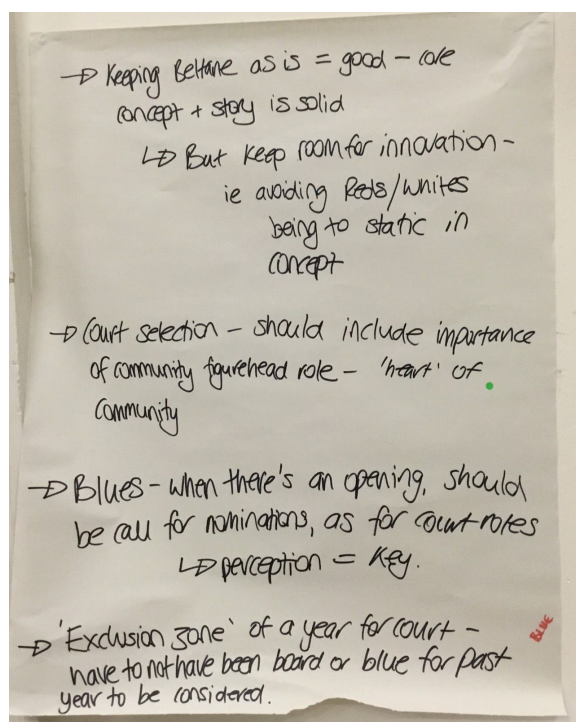 → Keeping Beltane as is = good - core
concept + story is solid
↳ But keep room for innovation -
ie avoiding Reds/Whites
being to static in
concept
→ Court selection - should include importance
of community figurehead role - 'heart' of
community
→ Blues - when there's an opening, should
be call for nominations, as for court roles
↳ perception = key.
→ 'Exclusion zone' of a year for court -
have to not have been board or blue for past
year to be considered.
BLUE